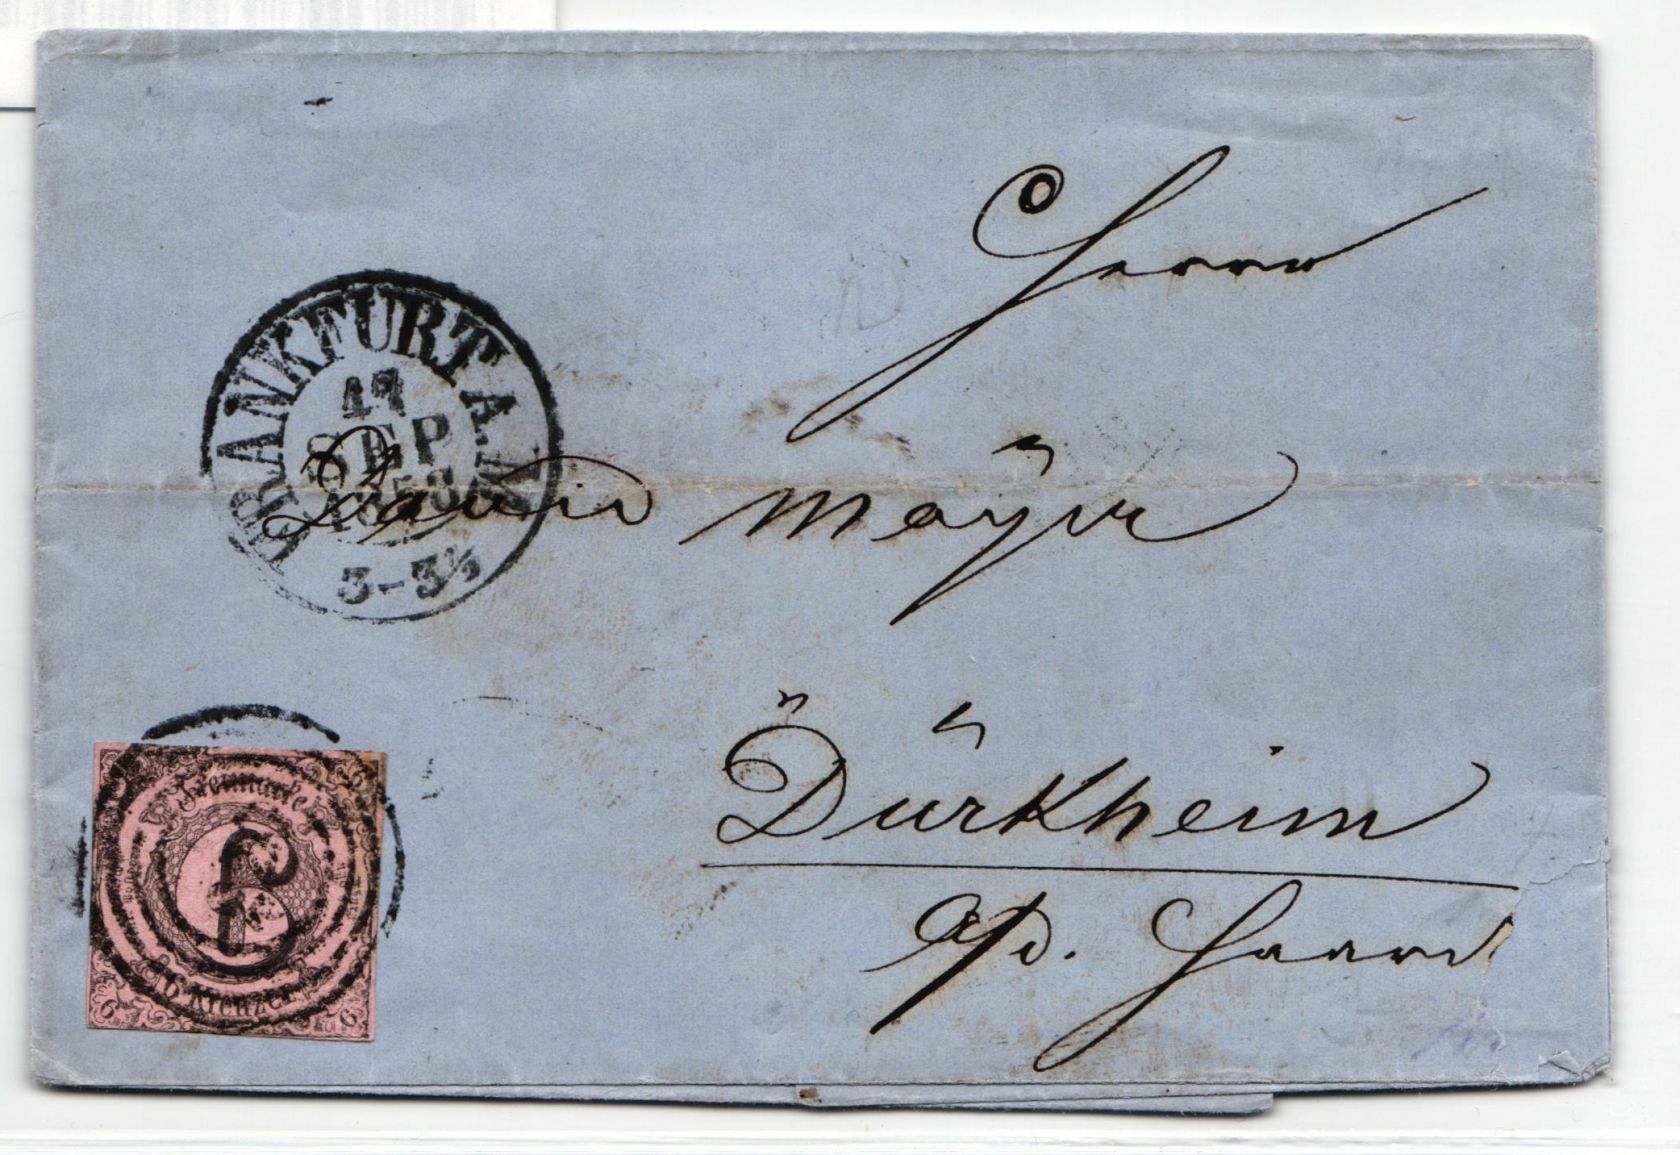 Herrn
FRANKFURT A.M.
17
SEP
3-3½
David Mayer
Dürkheim
a/d. Haardt
Freimarke
6 Kreuzer
6
6